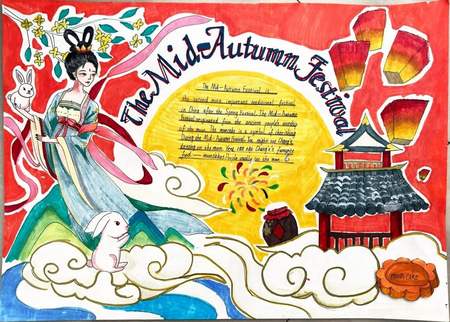 The Mid-Autumn Festival
The Mid-Autumn Festival is
the second most important traditional festival
in China after the Spring Festival. The Mid-Autumn
Festival originated from the ancient people's worship
of the moon. The mooncake is a symbol of
During the Mid-Autumn Festival, You might see Chang'e
dancing on the moon. Here are Chang'e's favourite
food — mooncakes! People usually the moon.
MOON CAKE